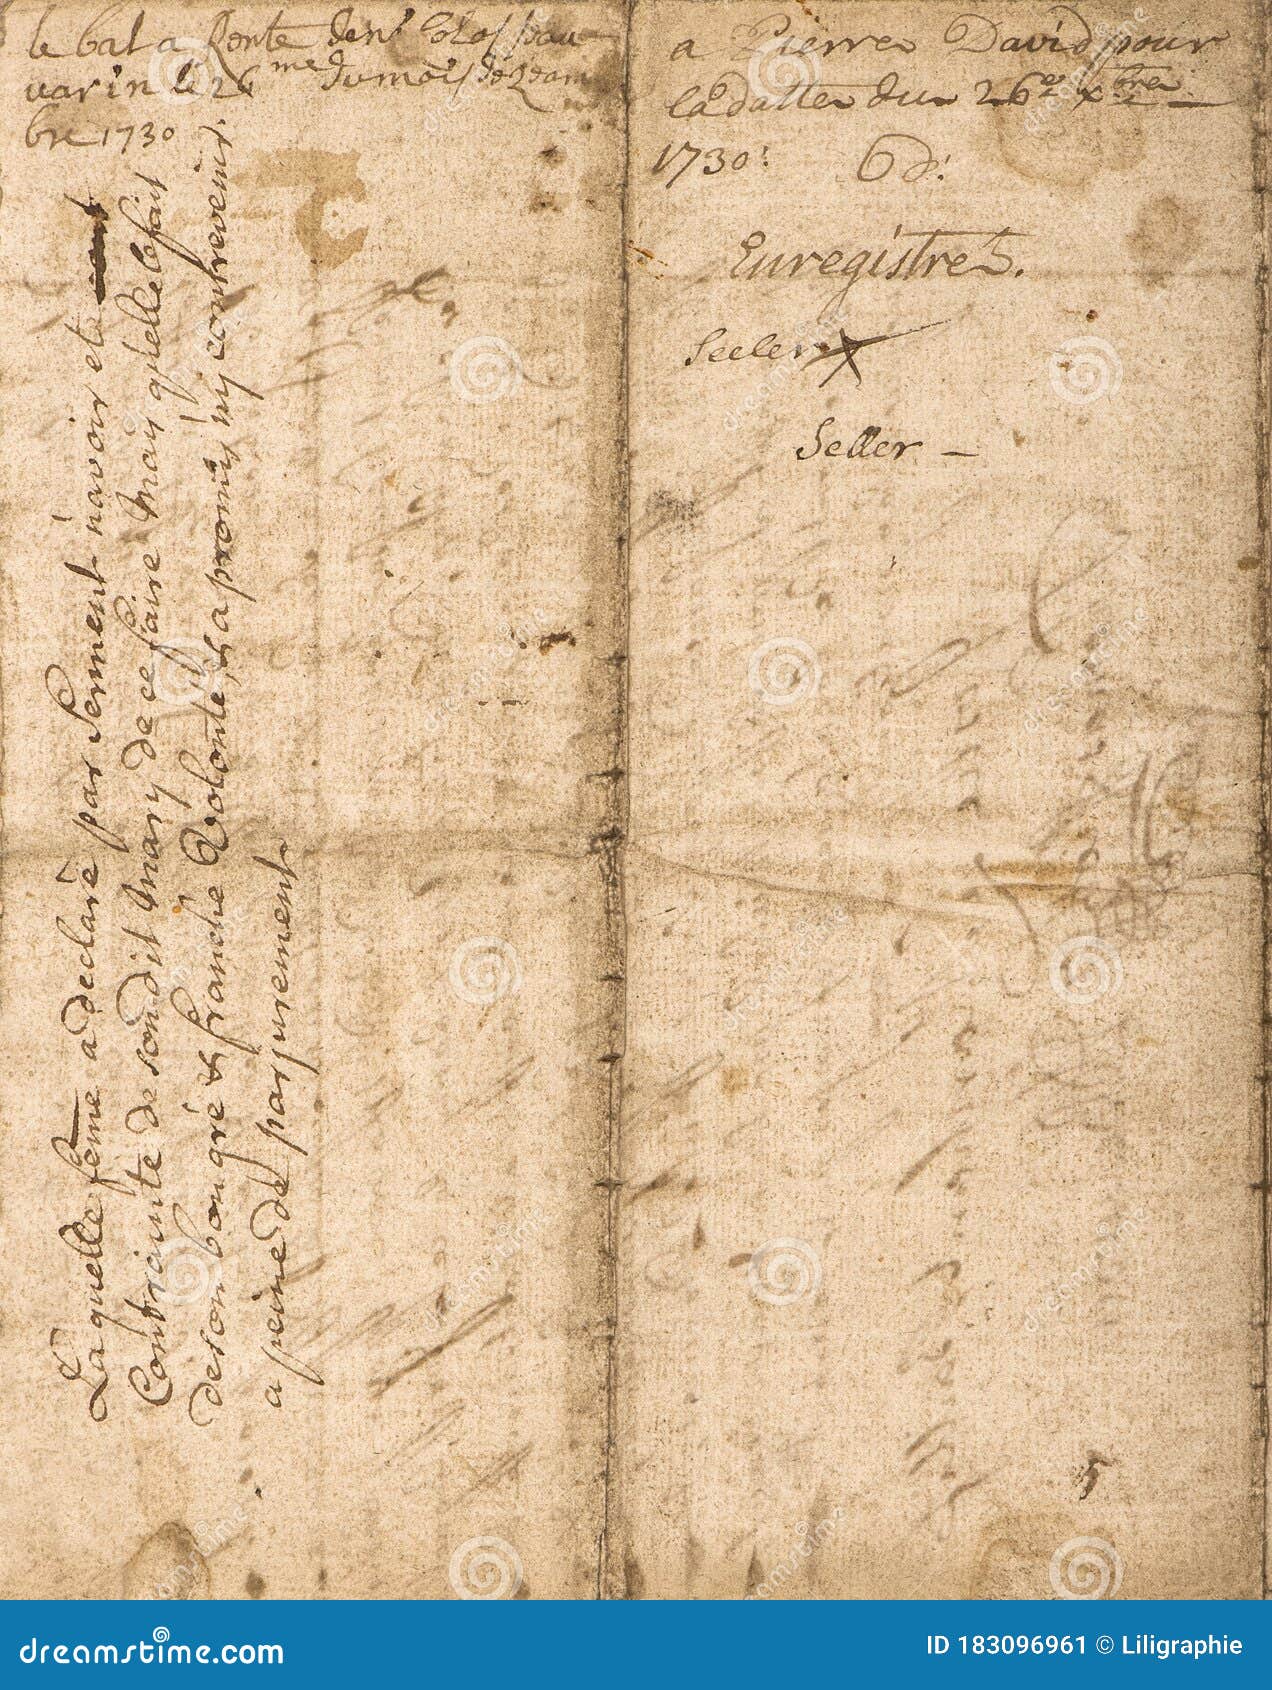 le bal a Rente de
var in le 26me du mois de
bre 1730
a Pierre David pour
la datte du 26e xbre
1730: 6d:
Enregistrez.
Seeler
Seller —
Laquelle féme a declaré par Serment navoir eté
Contrainte de son dit mary de ce faire mais quelle le fait
de son bon gré & franche Volonté, & a promis ny contrevenir
a peine de parjurement
5
dreamstime.com
ID 183096961 © Liligraphie